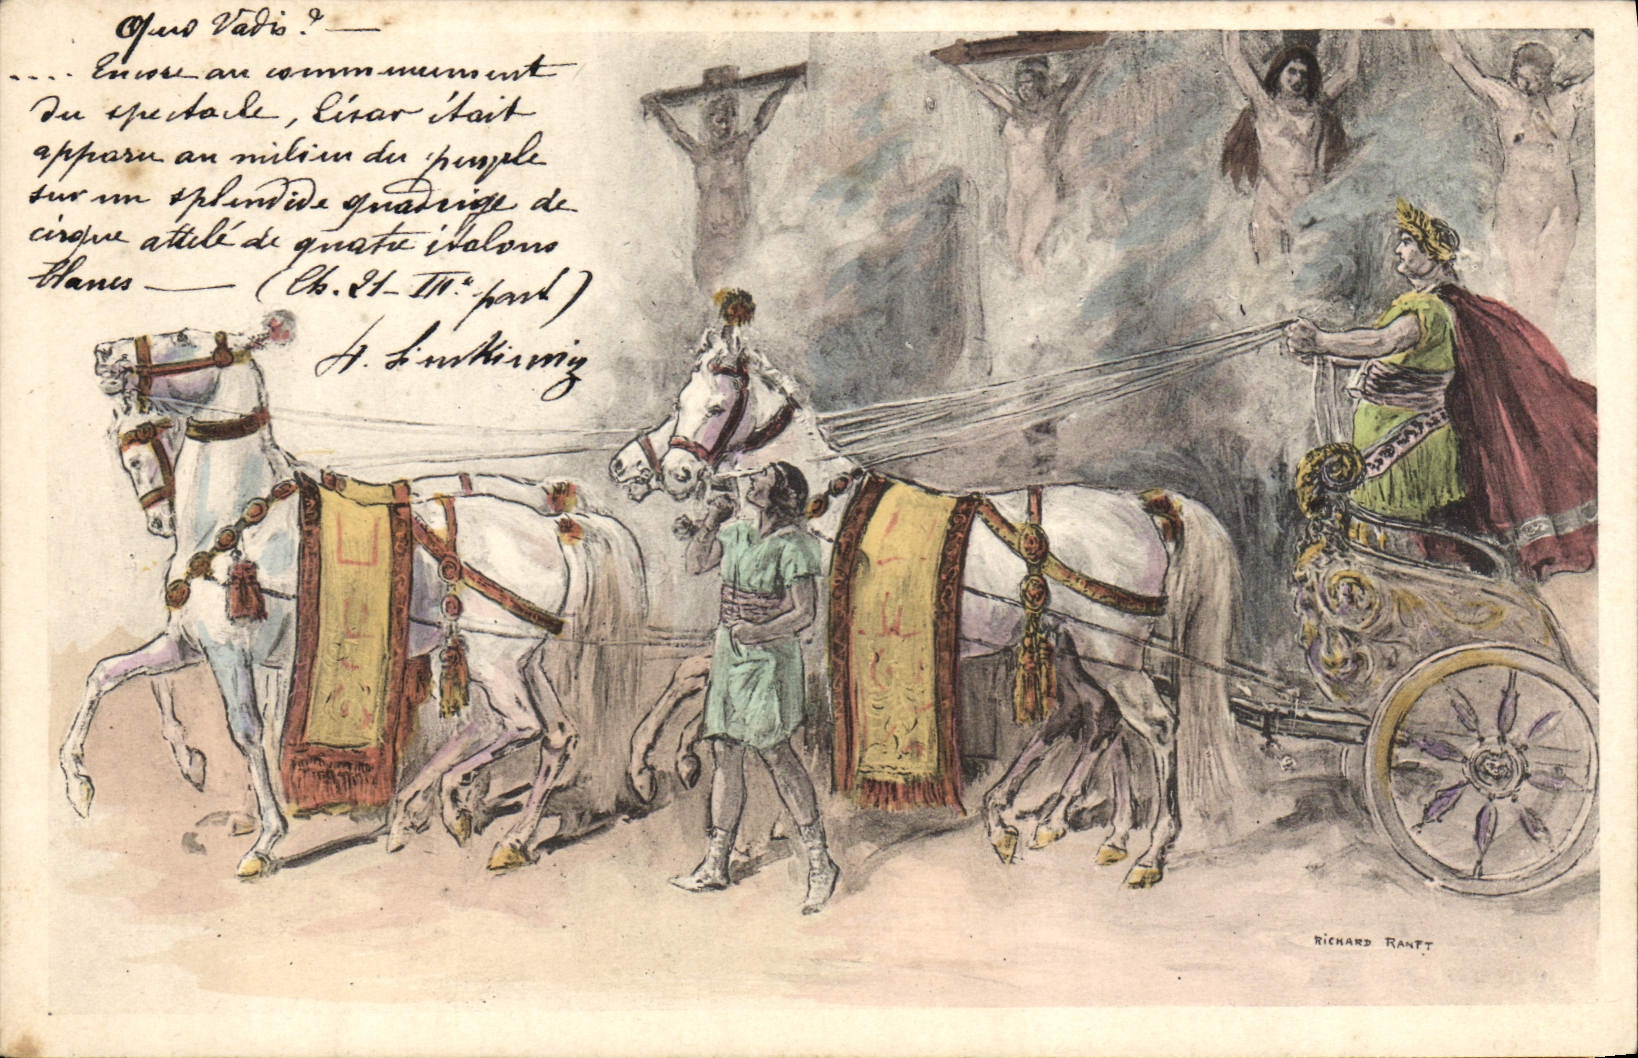 Quo Vadis ? —
.... Encore au commencement
du spectacle, César était
apparu au milieu du peuple
sur un splendide quadrige de
cirque attelé de quatre étalons
blancs — (Ch. 21 - IIIe part)
H. Sienkiewicz
RICHARD RANFT